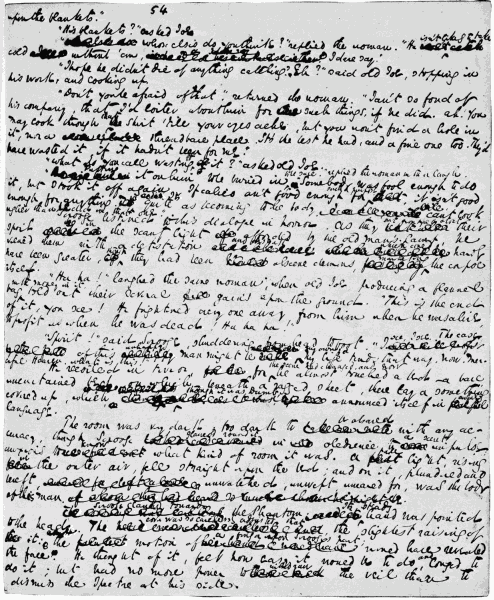 54
upon the blankets."
"His blankets?" asked Joe.
whose else's do you think?" replied the woman. "He isn't likely to take
cold without 'em, I dare say."
"I hope he didn't die of anything catching? Eh?" said old Joe, stopping in
his work, and looking up.
"Don't you be afraid of that," returned the woman. "I an't so fond of
his company, that I'd loiter about him for such things, if he did. Ah! You
may look through that shirt till your eyes ache; but you won't find a hole in
it, nor a threadbare place. It's the best he had, and a fine one too. They'd
have wasted it, if it hadn't been for me."
"What do you call wasting of it?" asked old Joe.
it on him to be buried in," replied the woman with a laugh. "Somebody was fool enough to do
it, but I took it off again. If calico an't good enough for that, it isn't good
enough for anything. as becoming to the body. He can't look
uglier than he did in that one."
Scrooge listened to this dialogue in horror. As they their
spoil the scant light by the old man's lamp, he
viewed them with a detestation and disgust, which could hardly
have been greater, they had been obscene demons, the corpse
itself.
"Ha ha!" laughed the same woman, when old Joe, producing a flannel
bag with money in it, told out their several gains upon the ground. "This is the end
of it, you see! He frightened every one away from him when he was alive
to profit us when he was dead! Ha ha ha!"
"Spirit!" said Scrooge, shuddering from head to foot. "I see, I see. The case
of this unhappy man might be my own. My life tends that way, now. Merciful
Heaven, what is this!"
He recoiled in terror, for the scene had changed, and now he almost touched a bed: a bare
uncurtained bed: on which, beneath a ragged sheet, there lay a something
covered up, which announced itself in awful
language.
The room was very dark, too dark to be observed with any ac-
curacy, though Scrooge glanced round it in obedience to a secret impulse,
anxious to know what kind of room it was. A pale light, rising
in the outer air, fell straight upon the bed; and on it, plundered and
bereft, unwatched, unwept, uncared for, was the body
of this man.
Scrooge glanced towards the Phantom. hand was pointed
to the head. The cover was so carelessly adjusted that the slightest raising of
it, the motion of a finger upon Scrooge's part, would have revealed
the face. He thought of it, felt how easy it would be to do, longed to
do it; but had no more power to withdraw the veil than to
dismiss the Spectre at his side.